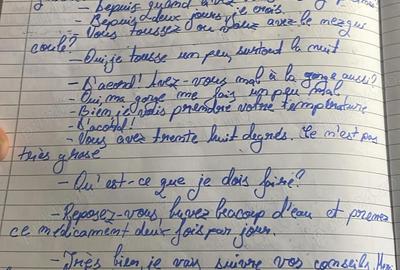 - Depuis quand avez
- Depuis deux jours, je crois.
- Vous toussez ou vous avez le nez qui
coule?
- Oui, je tousse un peu, surtout la nuit
- D'acord! Avez-vous mal à la gorge aussi?
- Oui, ma gorge me fais un peu mal
- Bien, je vais prendre votre température
- D'acord!
- Vous avez trente huit degrés. Ce n'est pas
très grose
- Qu'est-ce que je dois faire?
- Reposez-vous, buvez beacoup d'eau et prenez
ce médicament deux fois par jour.
- Très bien, je vais suivre vos conseils,